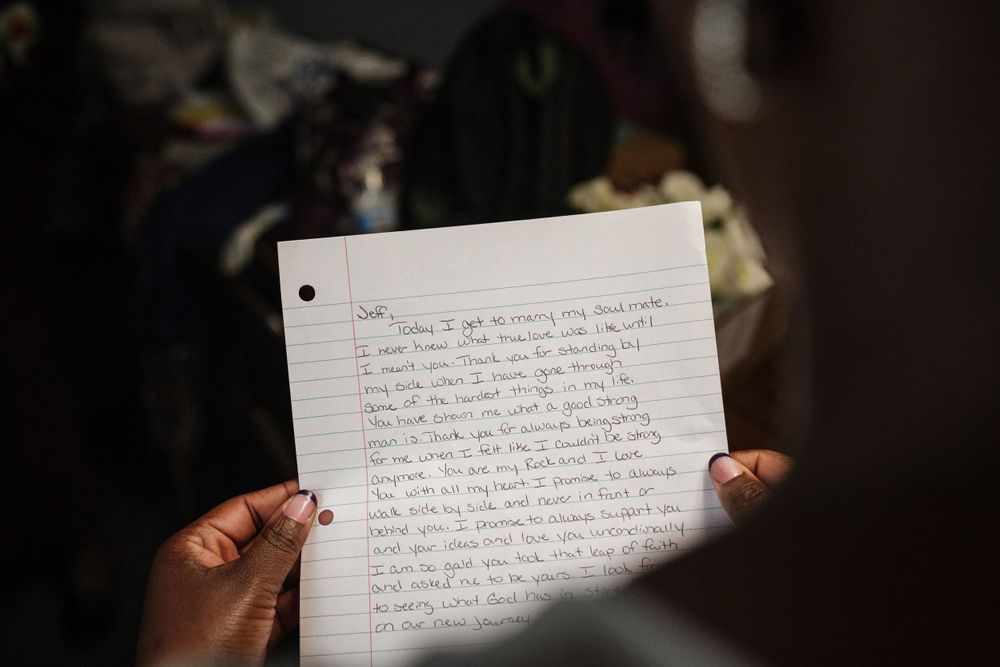 Jeff,
Today I get to marry my soul mate.
I never knew what true love was like until
I mean't you. Thank you for standing by
my side when I have gone through
some of the hardest things in my life.
You have shown me what a good strong
man is. Thank you for always being strong
for me when I felt like I couldn't be strong
anymore. You are my Rock and I love
you with all my heart. I promise to always
walk side by side and never in front or
behind you. I promise to always support you
and your ideas and love you uncondionally.
I am so gald you took that leap of faith
and asked me to be yours. I look
to seeing what God has in
on our new journey